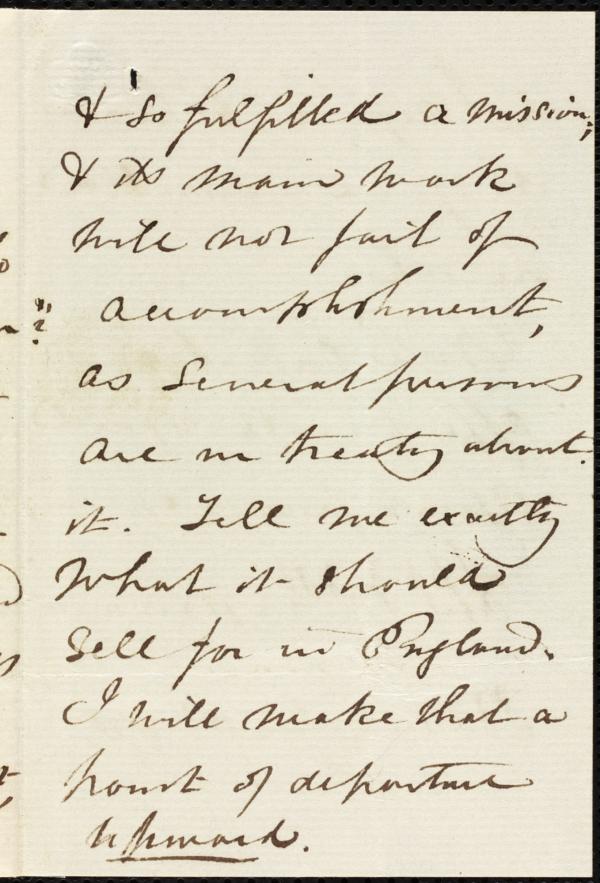 & so fulfilled a mission;
& its main work
will not fail of
accomplishment,
as several persons
are in treaty about
it. Tell me exactly
what it should
sell for in England.
I will make that a
point of departure
upward.